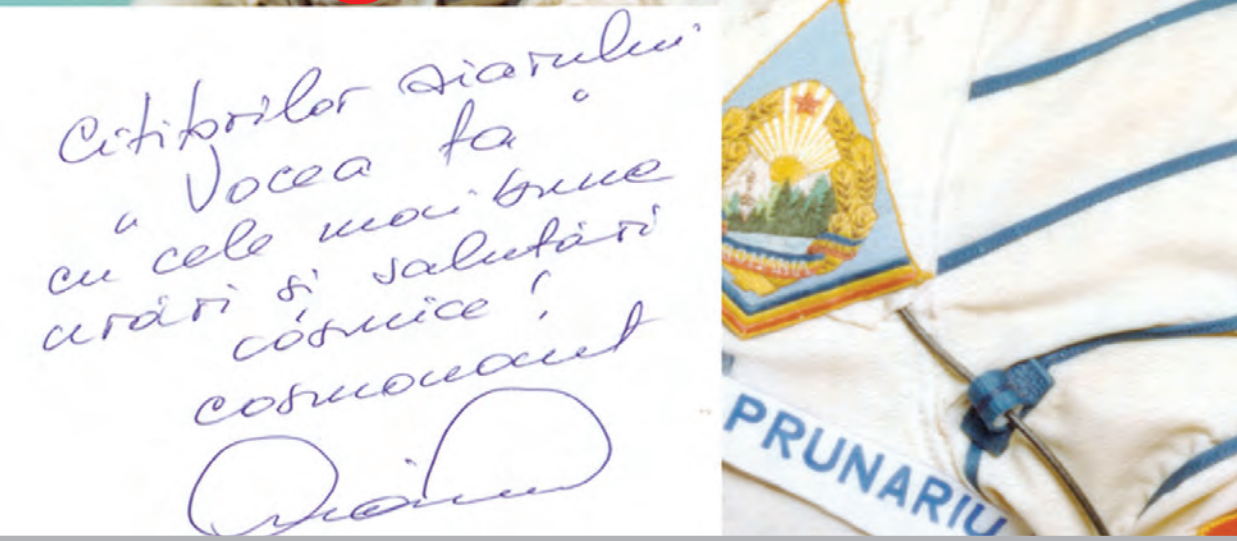 Cititorilor ziarului
"Vocea ta"
cu cele mai bune
urări și salutări
cosmice!
cosmonaut
ROMANIA
PRUNARIU